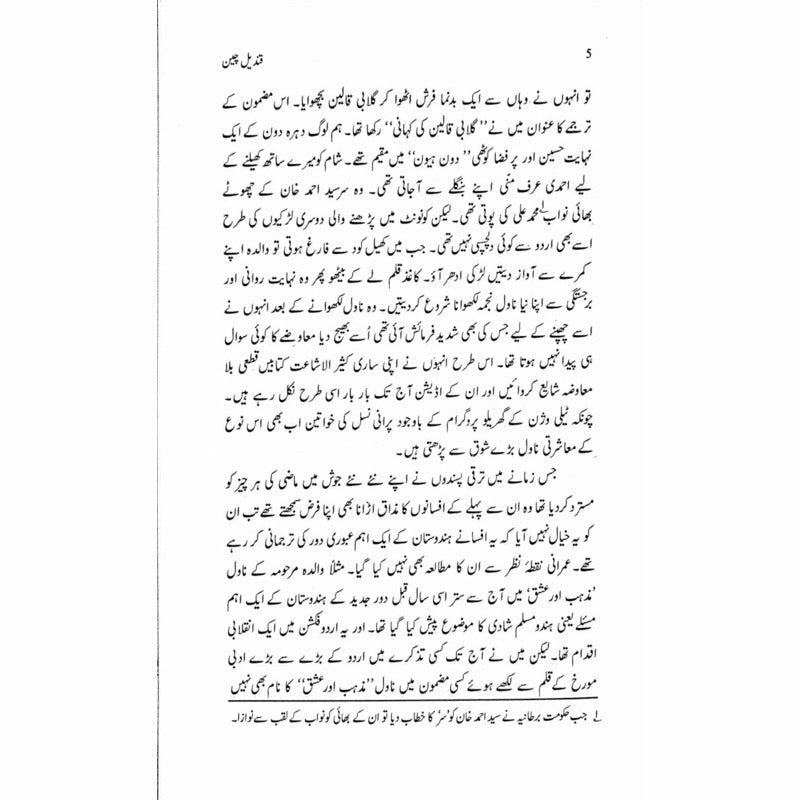 5
قندیل چین
تو انہوں نے وہاں سے ایک بدنما فرش اٹھوا کر گلابی قالین بچھوایا۔ اس مضمون کے
ترجمے کا عنوان میں نے ’’گلابی قالین کی کہانی‘‘ رکھا تھا۔ ہم لوگ دہرہ دون کے ایک
نہایت حسین اور پر فضا کوٹھی ’’دون ہیون‘‘ میں مقیم تھے۔ شام کو میرے ساتھ کھیلنے کے
لیے احمدی عرف منّی اپنے بنگلے سے آجاتی تھی۔ وہ سرسید احمد خان کے چھوٹے
بھائی نواب۱؎ محمد علی کی پوتی تھی۔ لیکن کونونٹ میں پڑھنے والی دوسری لڑکیوں کی طرح
اسے بھی اردو سے کوئی دلچسپی نہیں تھی۔ جب میں کھیل کود سے فارغ ہوتی تو والدہ اپنے
کمرے سے آواز دیتیں لڑکی ادھر آؤ۔ کاغذ قلم لے کے بیٹھو پھر وہ نہایت روانی اور
برجستگی سے اپنا نیا ناول نجمہ لکھوانا شروع کردیتیں۔ وہ ناول لکھوانے کے بعد انہوں نے
اسے چھپنے کے لیے جس کی بھی شدید فرمائش آئی تھی اُسے بھیج دیا معاوضے کا کوئی سوال
ہی پیدا نہیں ہوتا تھا۔ اس طرح انہوں نے اپنی ساری کثیر الاشاعت کتابیں قطعی بلا
معاوضہ شایع کروائیں اور ان کے اڈیشن آج تک بار بار اسی طرح نکل رہے ہیں۔
چونکہ ٹیلی وژن کے گھریلو پردگرام کے باوجود پرانی نسل کی خواتین اب بھی اس نوع
کے معاشرتی ناول بڑے شوق سے پڑھتی ہیں۔
جس زمانے میں ترقی پسندوں نے اپنے نئے نئے جوش میں ماضی کی ہر چیز کو
مسترد کردیا تھا وہ ان سے پہلے کے افسانوں کا مذاق اڑانا بھی اپنا فرض سمجھتے تھے تب ان
کو یہ خیال نہیں آیا کہ یہ افسانے ہندوستان کے ایک اہم عبوری دور کی ترجمانی کر رہے
تھے۔ عمرانی نقطۂ نظر سے ان کا مطالعہ بھی نہیں کیا گیا۔ مثلاً والدہ مرحومہ کے ناول
’مذہب اور عشق‘ میں آج سے ستر اسی سال قبل دور جدید کے ہندوستان کے ایک اہم
مسئلے یعنی ہندو مسلم شادی کا موضوع پیش کیا گیا تھا۔ اور یہ اردو فکشن میں ایک انقلابی
اقدام تھا۔ لیکن میں نے آج تک کسی تذکرے میں اردو کے بڑے سے بڑے ادبی
مورخ کے قلم سے لکھے ہوئے کسی مضمون میں ناول ’’مذہب اور عشق‘‘ کا نام بھی نہیں
۱؎ جب حکومت برطانیہ نے سید احمد خان کو ’سر‘ کا خطاب دیا تو ان کے بھائی کو نواب کے لقب سے نوازا۔